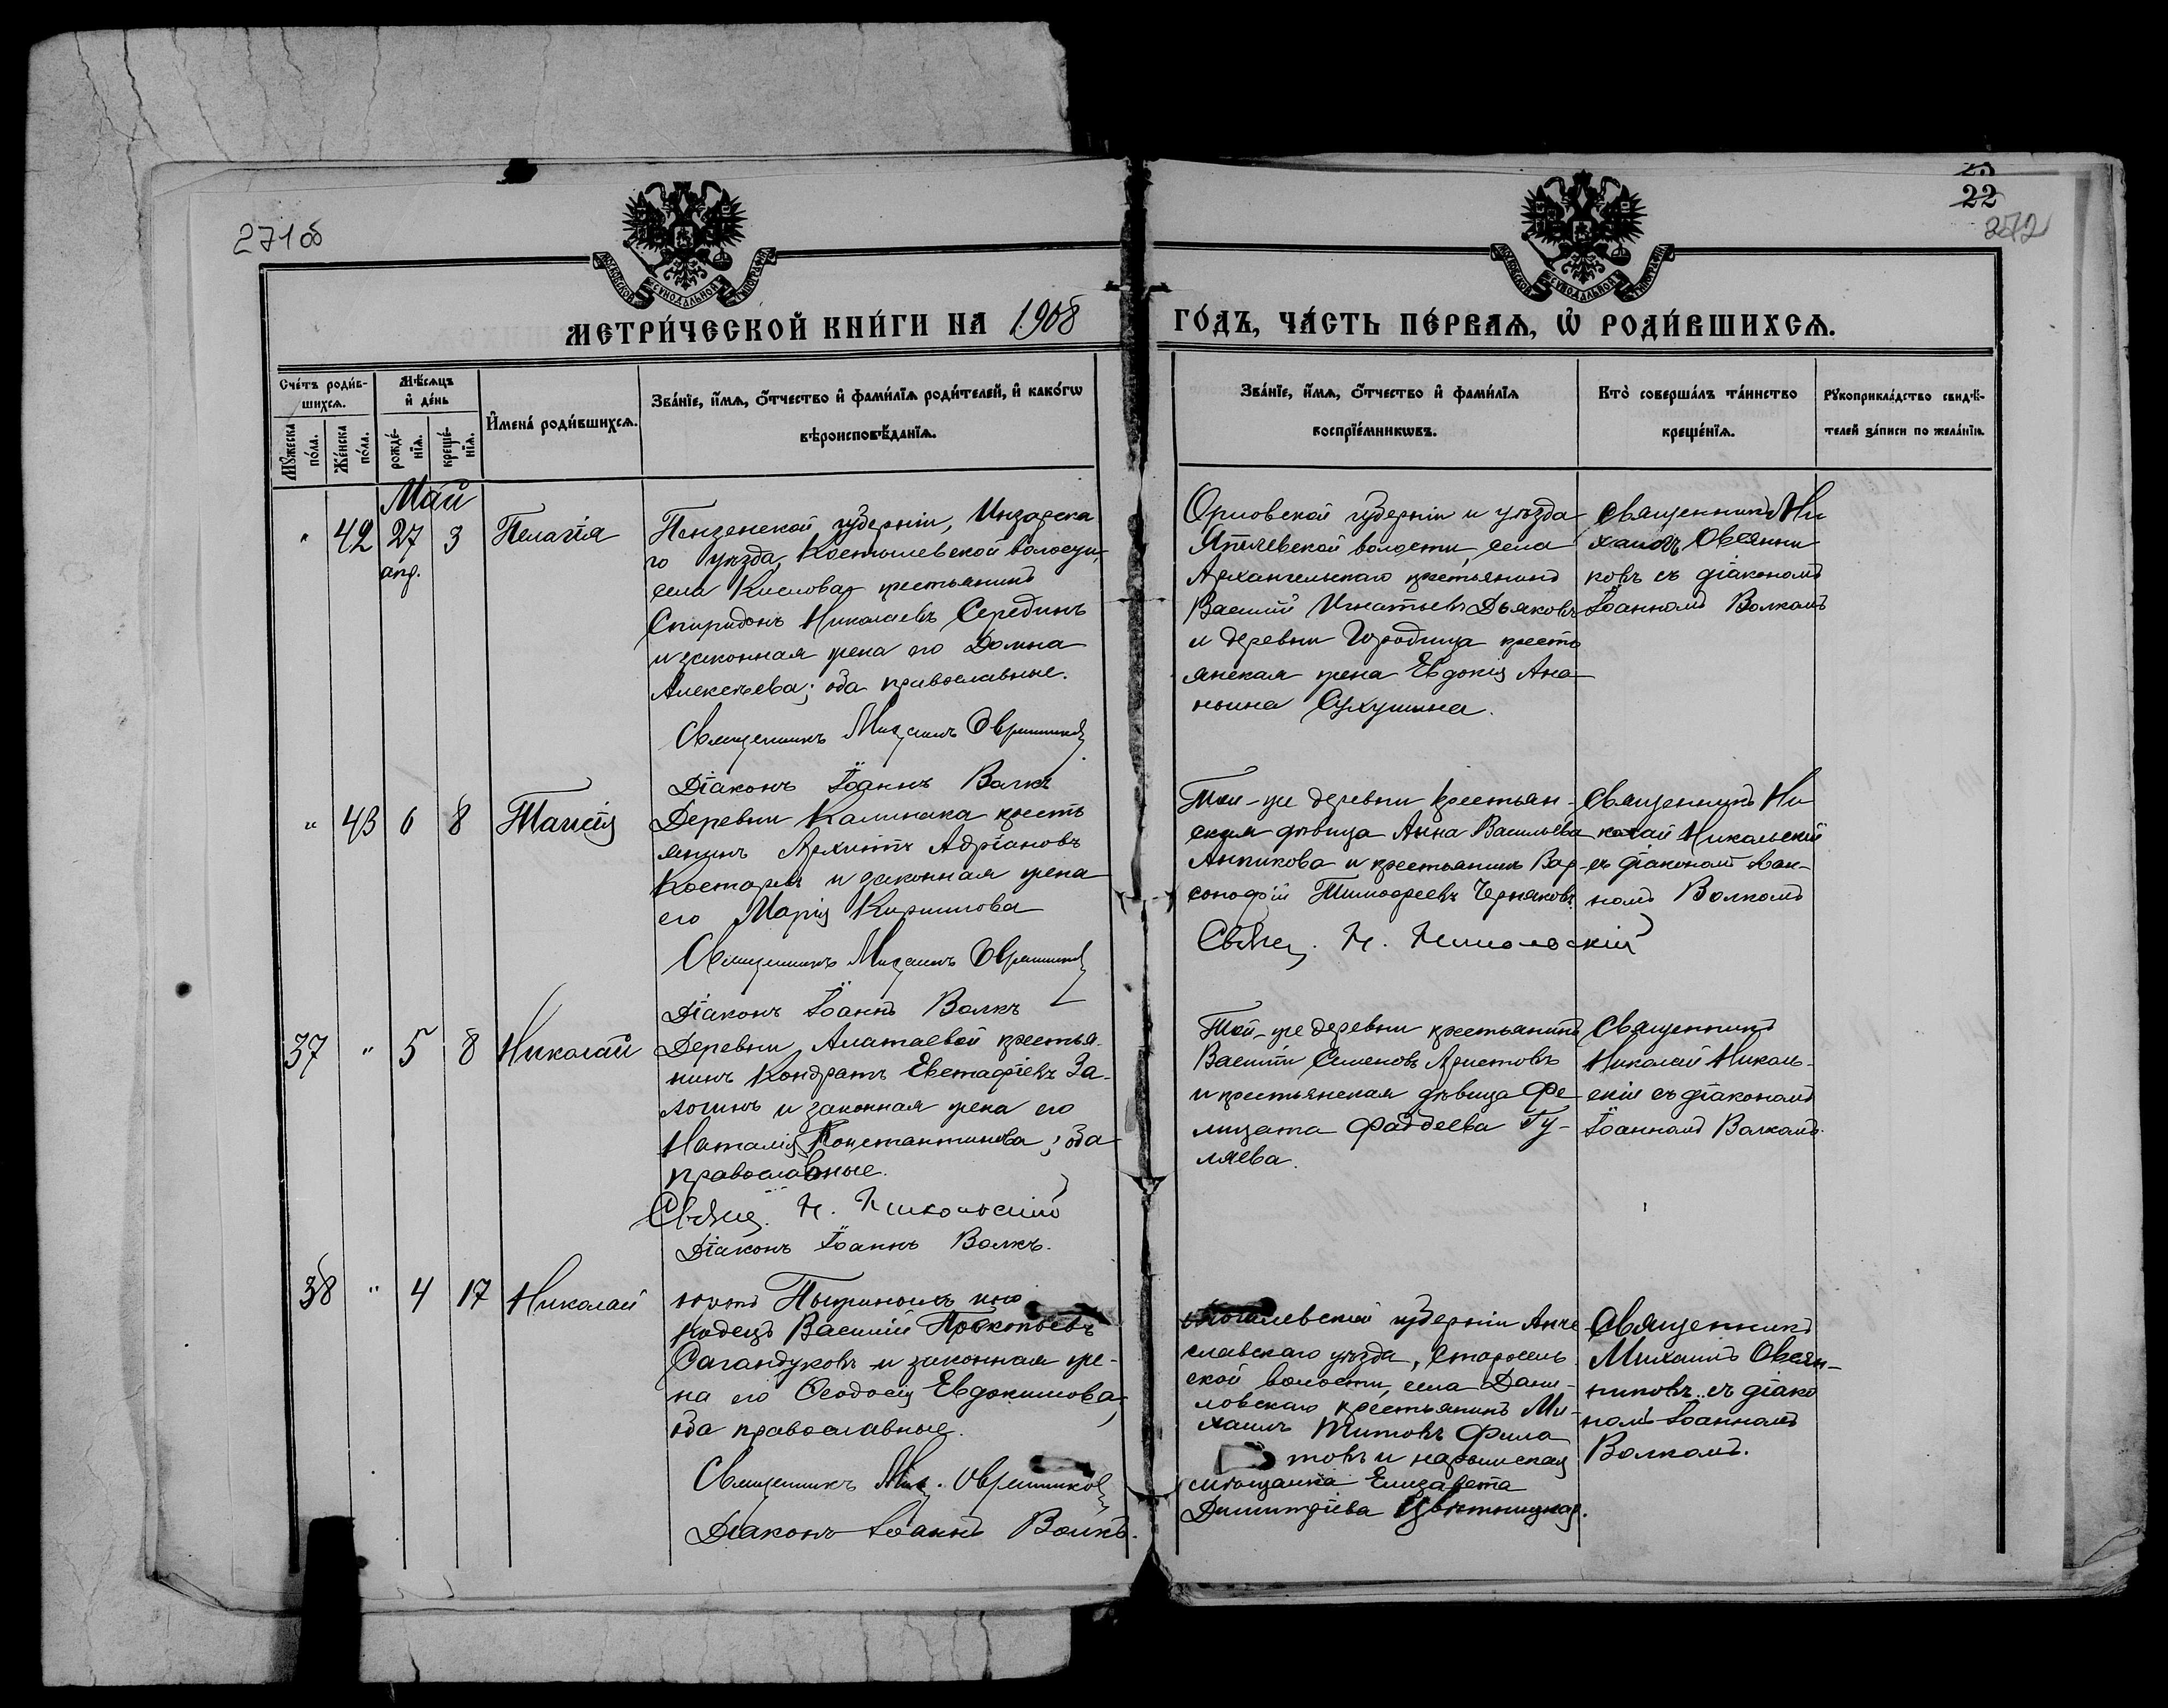 271об
23
22
272
МОСКОВСКОЙ СѴНОДАЛЬНОЙ ТИПОГРАФІИ
МОСКОВСКОЙ СѴНОДАЛЬНОЙ ТИПОГРАФІИ
МЕТРИ́ЧЕСКОЙ КНИ́ГИ НА 1908
ГО́ДЪ, ЧА́СТЬ ПЕ́РВАѦ, Ѡ҆ РОДИ́ВШИХСѦ.
Сче́тъ роди́в-
шихсѧ.
Мѣ́сѧцъ
и҆ де́нь
Мꙋ́жеска
по́ла.
Же́нска
по́ла.
рожде́-
нїѧ.
креще́-
нїѧ.
И҆мена̀ роди́вшихсѧ.
Зва́нїе, и҆́мѧ, ѻ҆́тчество и҆ фами́лїѧ роди́телей, и҆ како́гѡ
вѣроисповѣ́данїѧ.
Зва́нїе, и҆́мѧ, ѻ҆́тчество и҆ фами́лїѧ
воспрїе́мникѡвъ.
Кто̀ соверша́лъ та́инство
креще́нїѧ.
Рꙋкоприкла́дство свидѣ́-
телей за́писи по жела́нїю.
Май
" 42 27 3 Пелагія
апр.
Пензенской губерніи, Инзарска
го уѣзда, Костылевской волости,
села Кислова, крестьянинъ
Спиридонъ Николаевъ Серединъ
и законная жена его Домна
Алексѣева; оба православные.
Священникъ Михаилъ Овсянниковъ
Діаконъ Іоаннъ Волкъ
Орловской губерніи и уѣзда
волости, села
Архангельскаго крестьянинъ
Василій Игнатьевъ Дьяковъ
и деревни Городища кресть
янская жена Евдокія Ана
ньина Сухушина.
Священникъ Ми
хаилъ Овсянни
ковъ съ діакономъ
Іоанномъ Волкомъ
" 43 6 8 Таисія
Деревни Калинака кресть
янинъ Архипъ Адріановъ
Костаревъ и законная жена
его Марія Кириллова
Священникъ Михаилъ Овсянниковъ
Діаконъ Іоаннъ Волкъ
Той-же деревни крестьян-
ская дѣвица Анна Васильева
Аникова и крестьянинъ Вар-
сонофій Тимофеевъ Черняковъ.
Свящ. Н. Никольскій
Священникъ Ни
колай Никольскій
съ діакономъ Іоан-
номъ Волкомъ
37 " 5 8 Николай
Деревни Алатаевой крестья-
нинъ Кондратъ Евстафіевъ За-
логинъ и законная жена его
Наталія Константинова; оба
православные.
Свящ. Н. Никольскій
Діаконъ Іоаннъ Волкъ.
Той-же деревни крестьянинъ
Василій Семеновъ Аристовъ
и крестьянская дѣвица Фе
лицата Фаддеева Гу-
ляева.
Священникъ
Николай Николь-
скій съ діакономъ
Іоанномъ Волкомъ.
38 " 4 17 Николай
юртъ ино
родецъ Василій Прокопьевъ
Сагандуковъ и законная же-
на его Ѳеодосія Евдокимова,
оба православные.
Священникъ Мих. Овсянниковъ
Діаконъ Іоаннъ Волкъ.
Могилевской губерніи
славскаго уѣзда, Старосель
ской волости, села Дани-
ловскаго крестьянинъ Ми-
хаилъ Титовъ Фила
товъ и нарымская
мѣщанка Елизавета
Димитріева Цвѣтницкая.
Священникъ
Михаилъ Овсян-
никовъ съ діако
номъ Іоанномъ
Волкомъ.